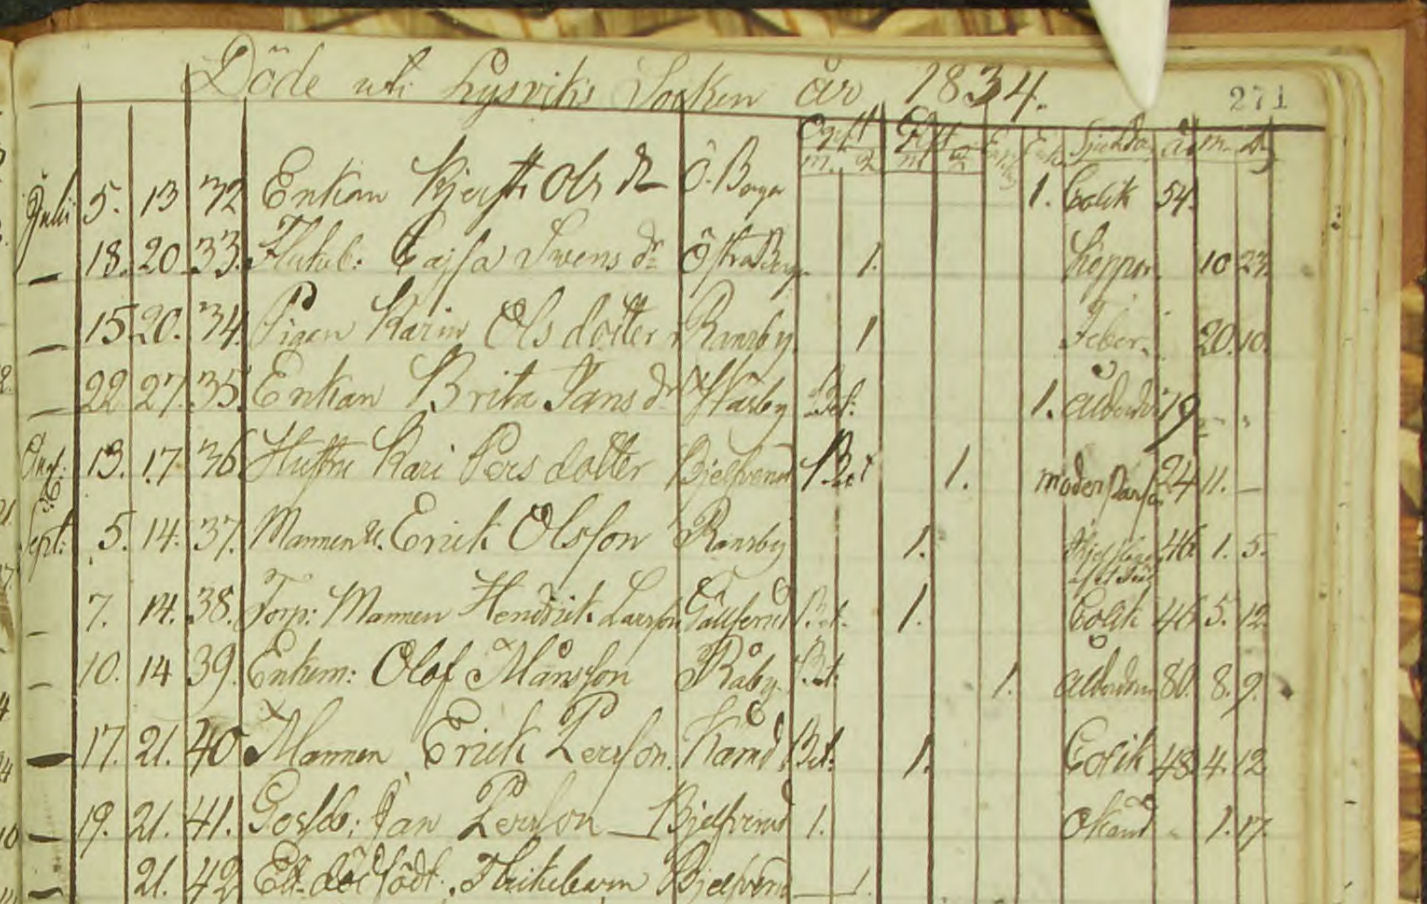 Döde uti Lysviks Socken år 1834. 271
Ogift Gift
m. q m. q Sjukdom år m. d.
Julii 5. 13 32 Enkan Kjersti Ols dr Ö. Berga 1. Colik 54.
— 18. 20. 33. Flickeb: Cajsa Svens dr Östra Berga 1. Koppor 10 23.
— 15 20. 34. Pigan Karin Olsdotter Ransby 1 Feber. 20. 10.
— 22 27. 35. Enkan Brita Jans dr Bet: 1. Ålderdom
Aug: 13. 17. 36. Hustru Kari Persdotter Bjelfverud Bet 1. 24 11. —
Sept: 5. 14. 37. Mannen Erick Olsson Ransby 1. 46 1. 5.
— 7. 14. 38. Torp: Mannen Hendrik Larsson Bet. 1. Colik 46 5. 12.
— 10. 14 39. Enkem: Olof Månsson Råby Bet: 1. Ålderdom 80. 8. 9.
— 17. 21. 40 Mannen Erick Persson. Bet. 1. Colik 48. 4. 12
— 19. 21. 41. Gosseb: Jan Persson — Bjelfverud 1. Okänd 1. 17.
— 21. 42 Ett dödfödt Flickebarn Bjelfverud — 1.